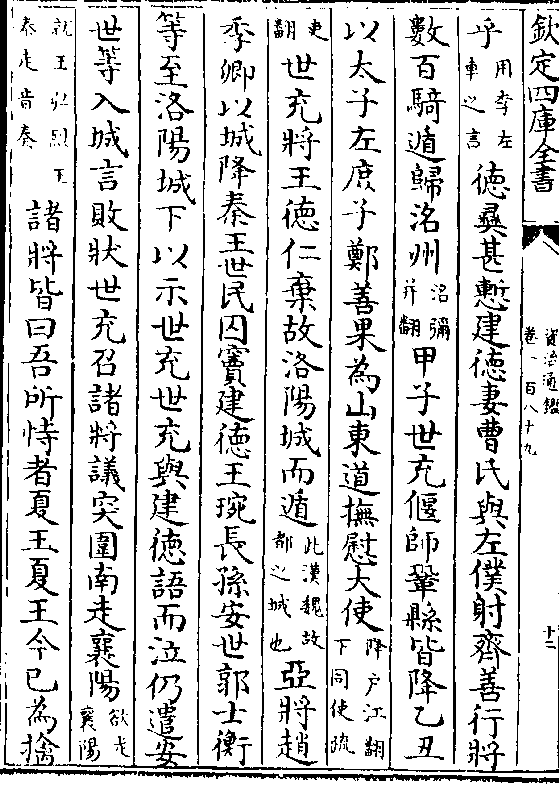 欽定四庫全書
資治通鑑
卷一百八十九
十二
乎用李左車之言德彝甚慙建德妻曹氏與左僕射齊善行將
數百騎遁歸洺州洺彌并翻甲子世充偃師鞏縣皆降乙丑
以太子左庶子鄭善果為山東道撫慰大使降户江翻下同使疏
吏翻世充將王德仁棄故洛陽城而遁此漢魏故都之城也亞將趙
季卿以城降秦王世民囚竇建德王琬長孫安世郭士衡
等至洛陽城下以示世充世充與建德語而泣仍遣安
世等入城言敗狀世充召諸將議突圍南走襄陽欲走襄陽
就王弘烈王泰走音奏諸將皆曰吾所恃者夏王夏王今已為擒